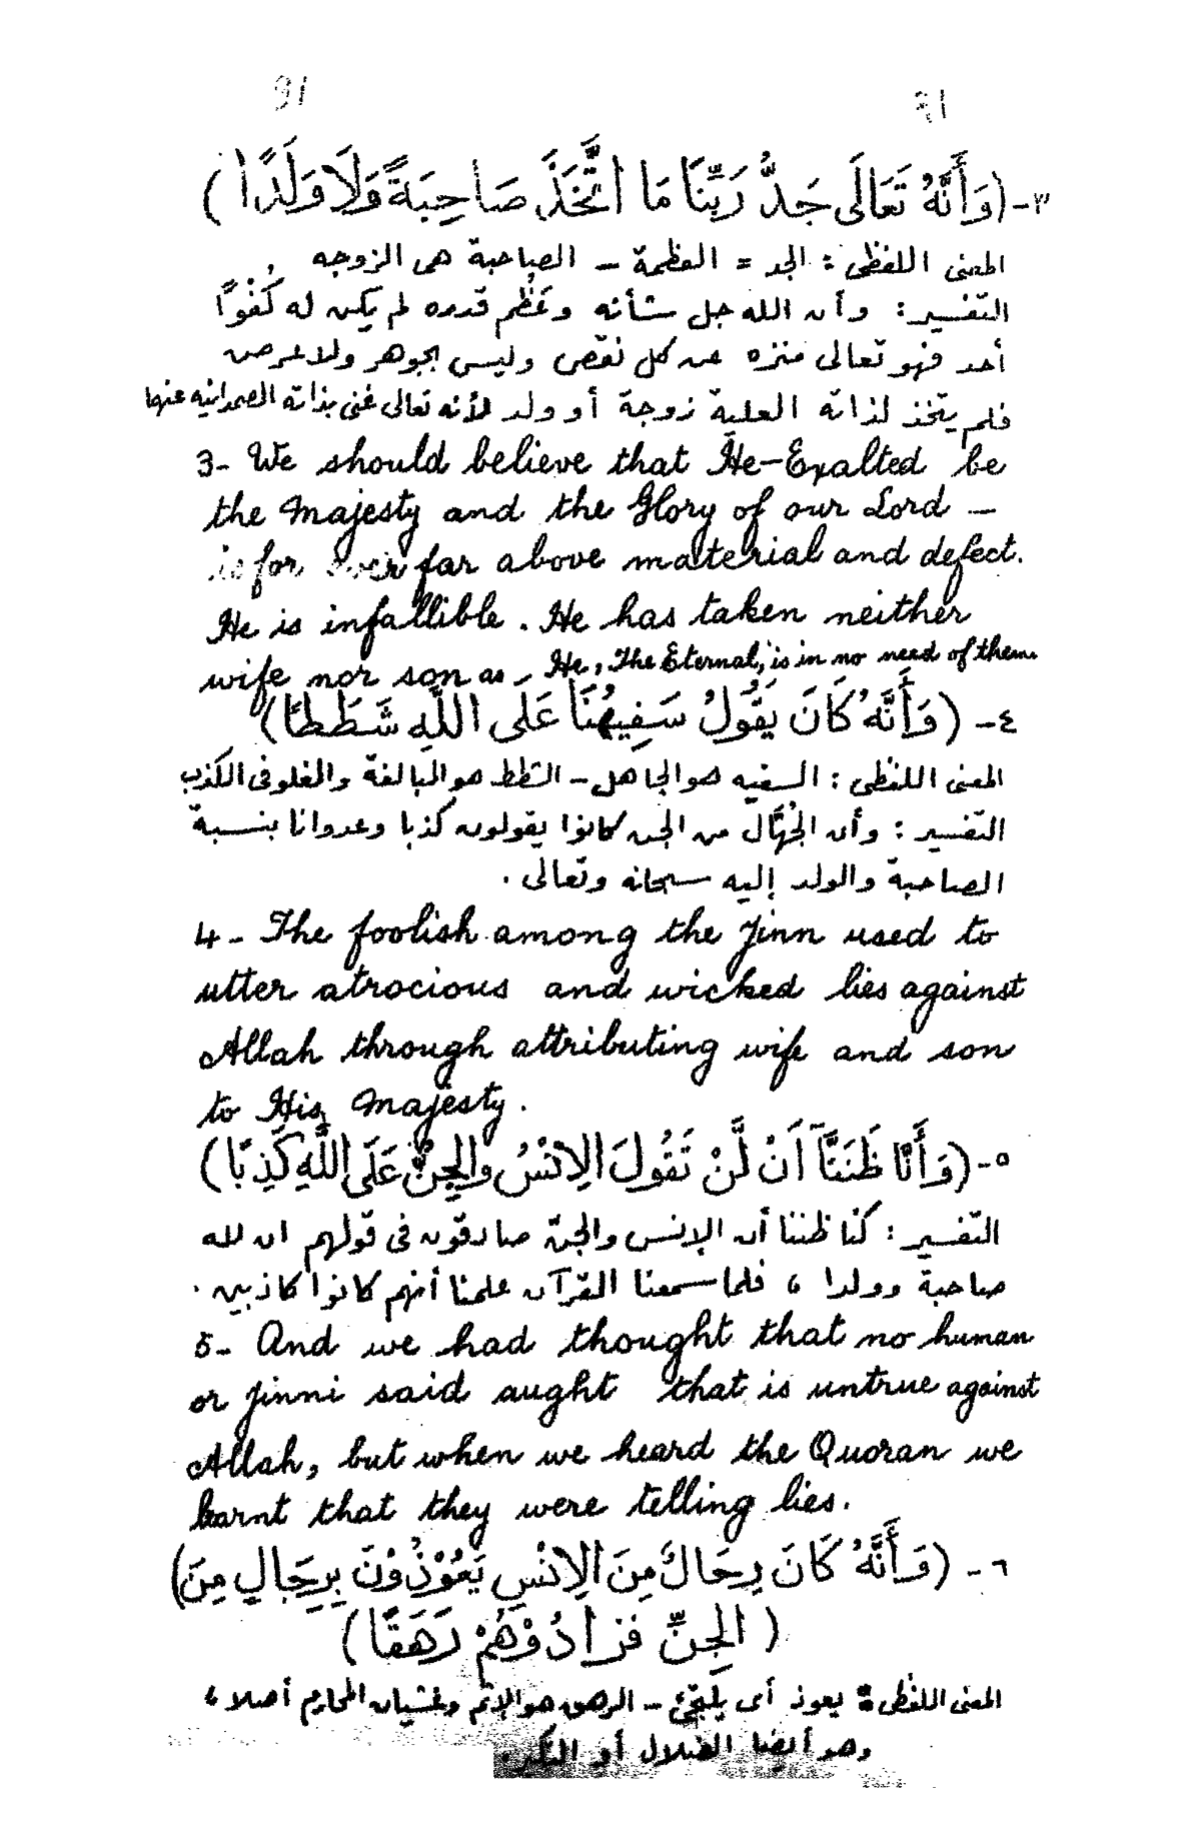 91 91
٣- (وَأَنَّهُ تَعَالَى جَدُّ رَبِّنَا مَا اتَّخَذَ صَاحِبَةً وَلَا وَلَدًا)
المعنى اللفظى : الجد = العظمة - الصاحبة هى الزوجه
التفسير : وأن الله جل شأنه وعَظُم قدره لم يكن له كُفُوًا
أحد فهو تعالى منزه عن كل نقص وليس بجوهر ولا عرض
فلم يتخذ لذاته العلية زوجة أو ولد لأنه تعالى غنى بذاته الصمدانيه عنها
3- We should believe that He-Exalted be
the Majesty and the Glory of our Lord -
is for ever far above material and defect.
He is infallible. He has taken neither
wife nor son as - He, The Eternal, is in no need of them.
٤- (وَأَنَّهُ كَانَ يَقُولُ سَفِيهُنَا عَلَى اللَّهِ شَطَطًا)
المعنى اللفظى : السفيه هو الجاهل - الشطط هو المبالغة والغلو فى الكذب
التفسير : وأن الجُهَّال من الجن كانوا يقولون كذبا وعدوانا بنسبة
الصاحبة والولد إليه سبحانه وتعالى .
4- The foolish among the Jinn used to
utter atrocious and wicked lies against
Allah through attributing wife and son
to His Majesty.
٥- (وَأَنَّا ظَنَنَّآ أَنْ لَّنْ تَقُولَ الِانْسُ والْجِنُّ عَلَى اللَّهِ كَذِبًا)
التفسير : كنا ظننا أن الإنس والجن صادقون فى قولهم ان لله
صاحبة وولدا ، فلما سمعنا القرآن علمنا أنهم كانوا كاذبين .
5- And we had thought that no human
or Jinni said aught that is untrue against
Allah, but when we heard the Quoran we
learnt that they were telling lies.
٦- (وَأَنَّهُ كَانَ رِجَالٌ مِنَ الِانْسِ يَعُوْذُوْنَ بِرِجَالٍ مِنَ)
(الْجِنِّ فَزَادُوْهُمْ رَهَقًا)
المعنى اللفظى : يعوذ أى يلتجئ - الرهق هو الإثم وغشيان المحارم أصلا ،
وهو أيضا الضلال أو